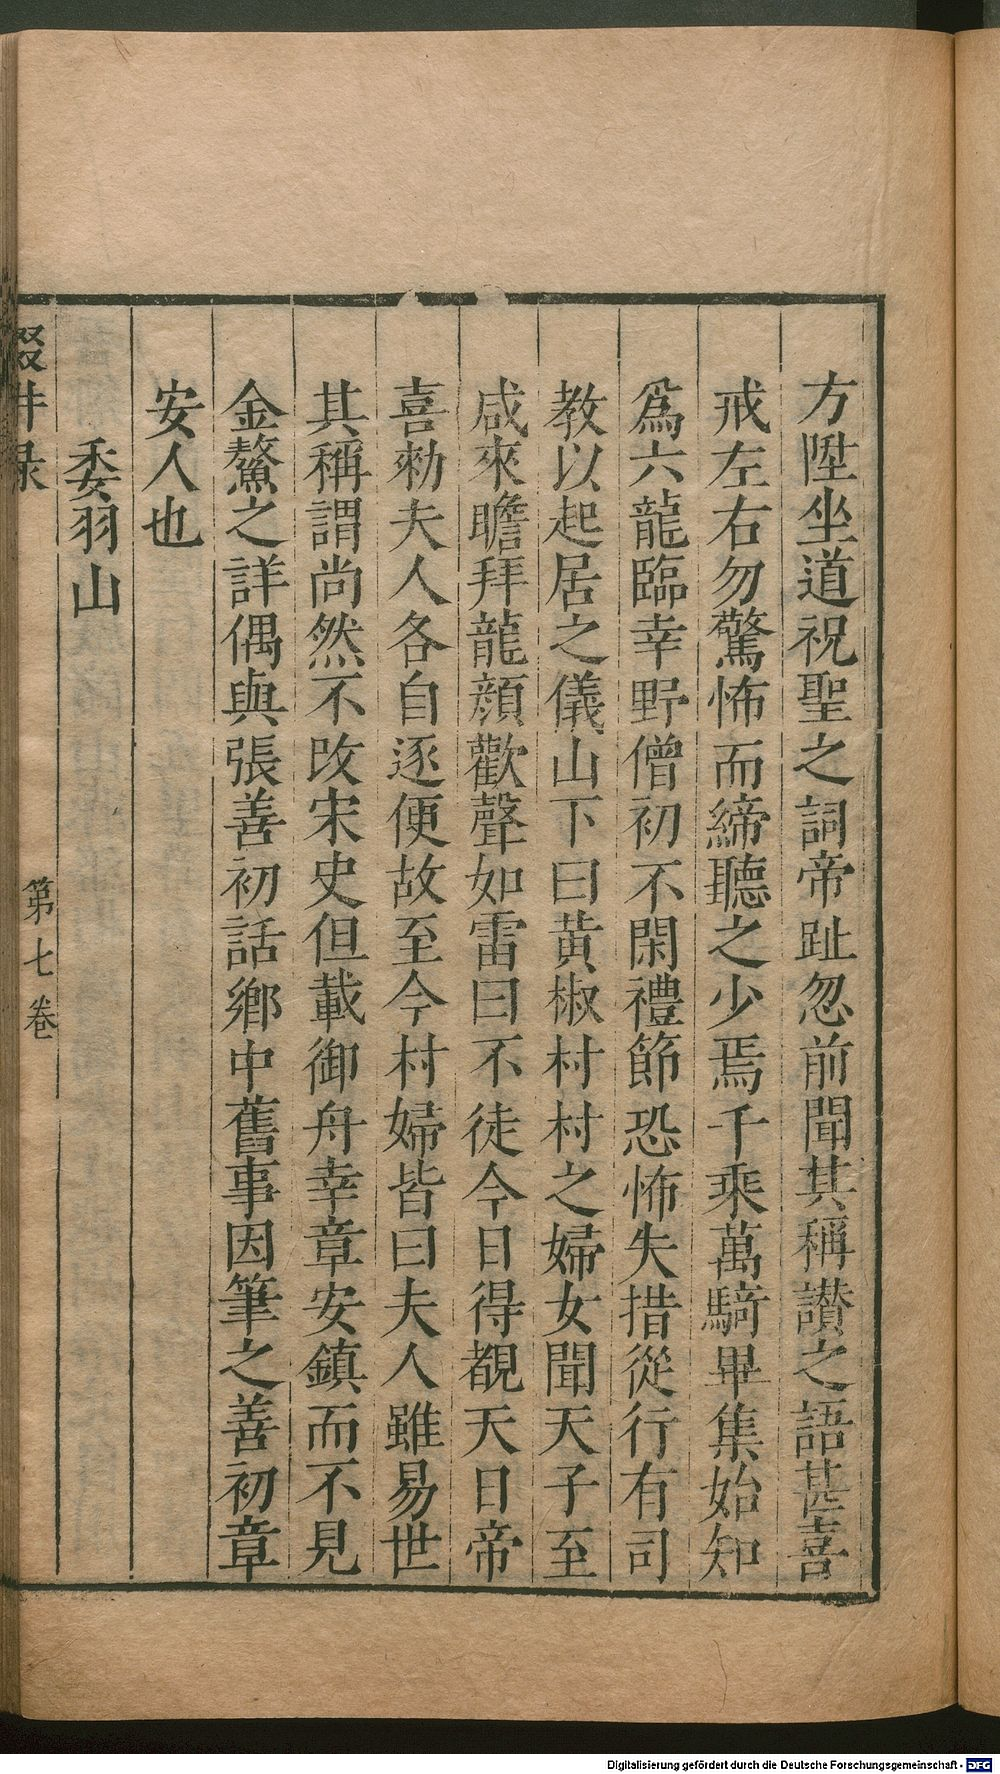 方陞坐道祝聖之詞帝趾忽前聞其稱讃之語甚喜
戒左右勿驚怖而締聽之少焉千乘萬騎畢集始知
爲六龍臨幸野僧初不閑禮節恐怖失措從行有司
教以起居之儀山下曰黃椒村村之婦女聞天子至
咸來瞻拜龍顔歡聲如雷曰不徒今日得覩天日帝
喜勑夫人各自逐便故至今村婦皆曰夫人雖易世
其稱謂尚然不改宋史但載御舟幸章安鎮而不見
金鰲之詳偶與張善初話鄉中舊事因筆之善初章
安人也
委羽山
輟耕录 第七卷
Digitalisierung gefördert durch die Deutsche Forschungsgemeinschaft - DFG